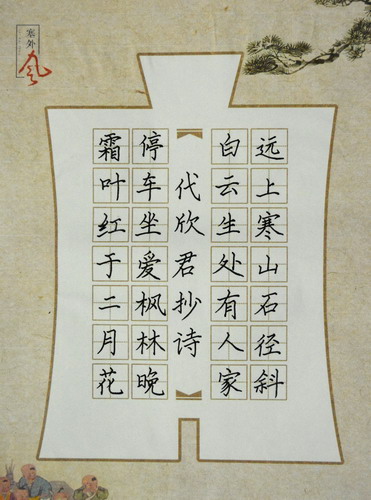 远上寒山石径斜
白云生处有人家
代欣君抄诗
停车坐爱枫林晚
霜叶红于二月花
塞外